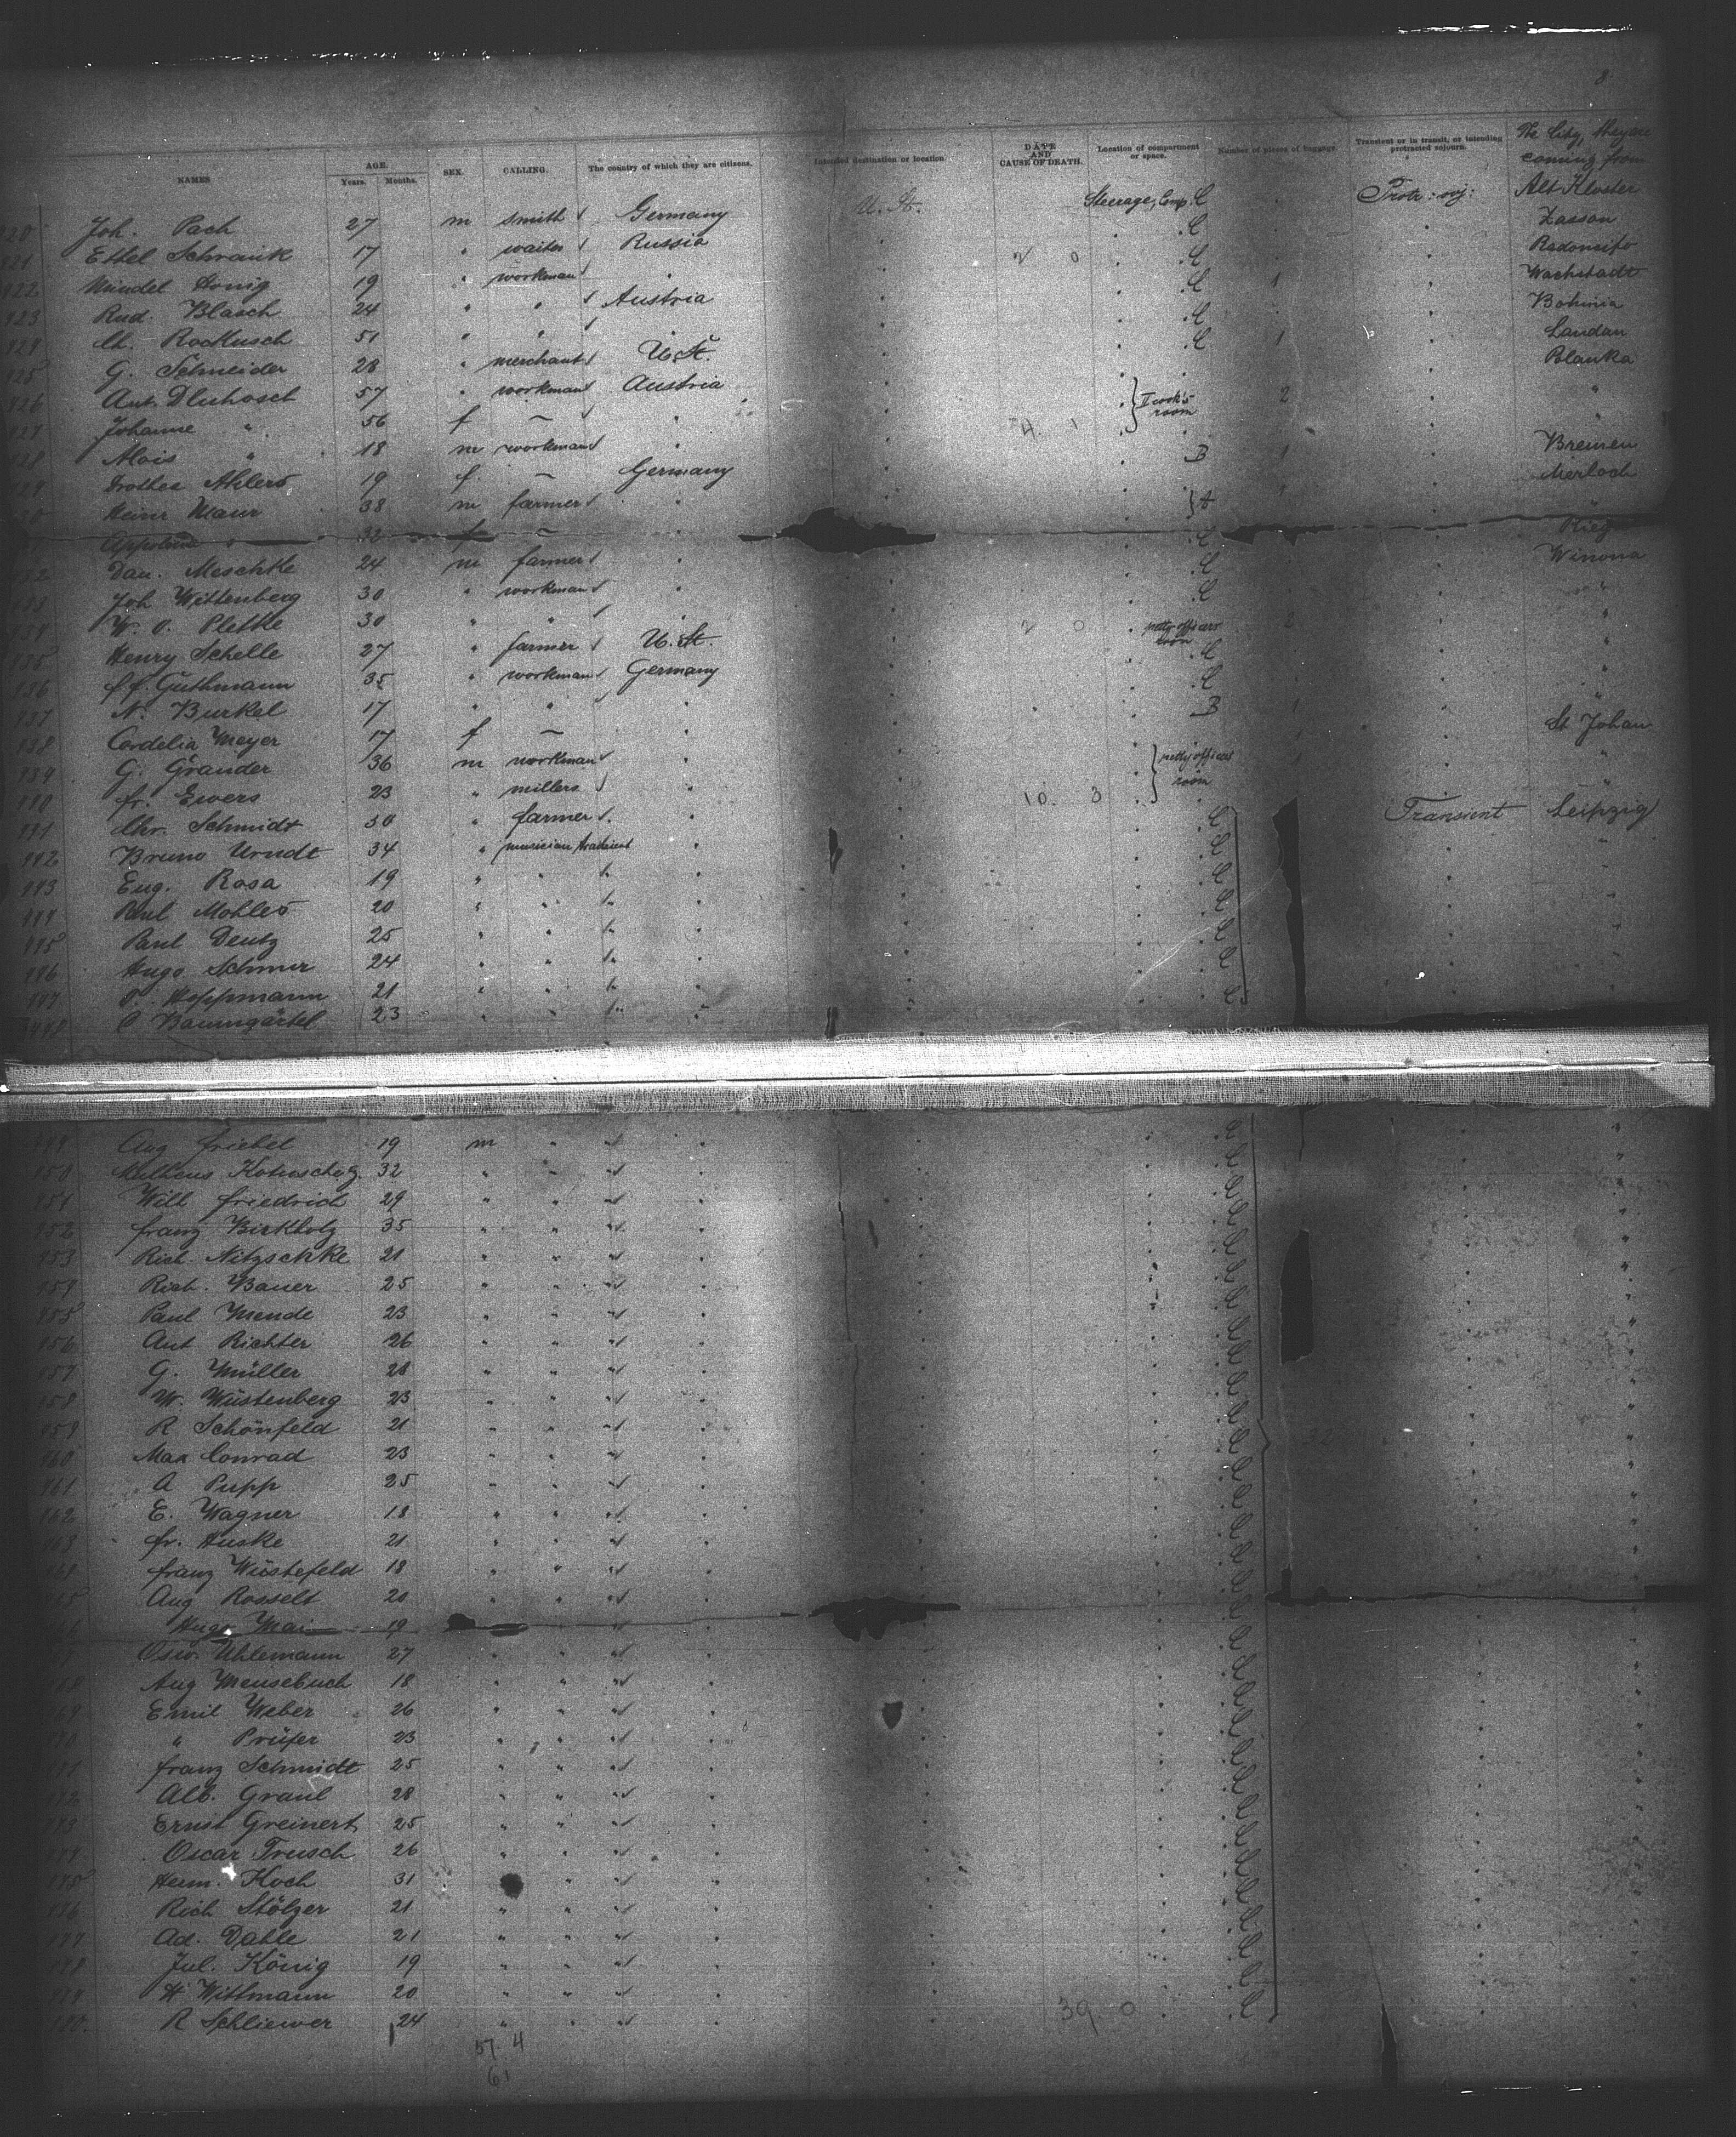 8
NAMES AGE. Years. Months. SEX. CALLING. The country of which they are citizens. Intended destination or location DATE AND CAUSE OF DEATH. Location of compartment or space. Number of pieces of baggage. Transient or in transit, or intending protracted sojourn. The City, they are coming from
420 Joh. Pach 27 m smith Germany U. St. Steerage, Comp. C Protr: soj: Alt Kloster
421 Ettel Schrank 17 " waiter Russia " C " Zasson
422 Mendel Honig 19 " workman " " 2 0 C "
423 Rud. Blasch 24 " " Austria " C 1 " Wachstadt
424 Ch. Rockusch 51 " " " " C " Bohmia
425 G. Schneider 28 " merchant U. St. " C 1 " Landau
426 Ant. Dluhosch 57 " workman Austria " II cook's room 2 " Blanka
427 Johanne " 56 f — " " " "
428 Alois " 18 m workman " " 4 1 " "
429 Drothea Ahlers 19 f — Germany " B 1 " Bremen
430 Heinr Maur 38 m farmer " " A 1 " Merlach
" 32 f — " "
432 Dan. Meschke 24 m farmer " " C " Winona
433 Joh Wittenberg 30 " workman " " C " "
434 W. O. Pletke 30 " " " " C " "
435 Henry Schelle 27 " farmer U. St. " 2 0 petty officers room 2 " "
436 f. f. Guthmann 35 " workman Germany " C " "
437 N. Burkel 17 " " " " C " "
438 Cordelia Meyer 17 f — " " B 1 " "
439 G. Grander 36 m workman " " petty officers room " St Johan
440 fr. Ewers 23 " millers " " " "
441 Chr. Schmidt 30 " farmer " " 10. 3 " "
442 Bruno Urndt 34 " musician " " C Transient Leipzig
443 Eug. Rosa 19 " " " " C " "
444 Paul Mohles 20 " " " " C " "
445 Paul Deutz 25 " " " " C " "
446 Hugo Schmer 24 " " " " C " "
447 O. Hoppmann 21 " " " " C " "
448 C Baumgärtel 23 " " " " C " "
449 Aug friebel 19 m " " " C " "
450 32 " " " " C " "
451 Will friedrich 29 " " " " C " "
452 franz Birkholz 35 " " " " C " "
453 Rich. Nitzschke 21 " " " " C " "
454 Rich. Bauer 25 " " " " C " "
455 Paul Mende 23 " " " " C " "
456 Ant Richter 26 " " " " C " "
457 G. Müller 28 " " " " C " "
458 W. Wüstenberg 23 " " " " C " "
459 R Schönfeld 21 " " " " C " "
460 Max Conrad 23 " " " " C 32 " "
461 A Pupp 25 " " " " C " "
462 E. Wagner 18 " " " " C " "
463 fr. Huske 21 " " " " C " "
464 franz Wüstefeld 18 " " " " C " "
465 Aug Rosselt 20 " " " " C " "
466 Hugo Mai 19 " " " C " "
467 Osw. Uhlemann 27 " " " " C " "
468 Aug Meusebuch 18 " " " " C " "
469 Emil Weber 26 " " " " C " "
470 " Prüfer 23 " " " " C " "
471 franz Schmidt 25 " " " " C " "
472 Alb. Graul 28 " " " " C " "
473 Ernst Greinert 25 " " " " C " "
474 Oscar Trusch 26 " " " " C " "
475 Herm. Koch 31 " " " " C " "
476 Rich Stölzer 21 " " " " C " "
477 Ad. Dahle 21 " " " " C " "
478 Jul. König 19 " " " " C " "
479 H Wittmann 20 " " " " C " "
480. R Schliewer 24 " " " " 39 0 C " "
57 4
61